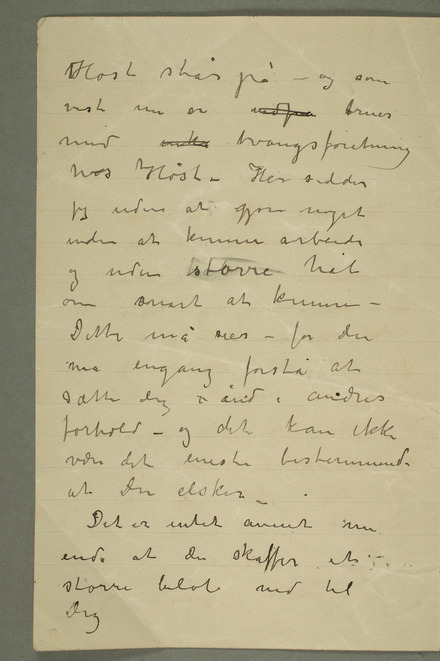 Høst står på – og som
vist nu er udpa trues
med tvangsforretning
hos Høst – Her sidder
jeg uden at gjøre noget
uden at kunne arbeide
og uden større håb
om snart at kunne –
Dette må sies – for Du
må engang forstå at
sætte Dig i ånd i andres
forhold – og det kan ikke
være det eneste bestemmende
at Du elsker –
Det er intet annet nu
end at du skaffer et
større beløb ned til
Dig